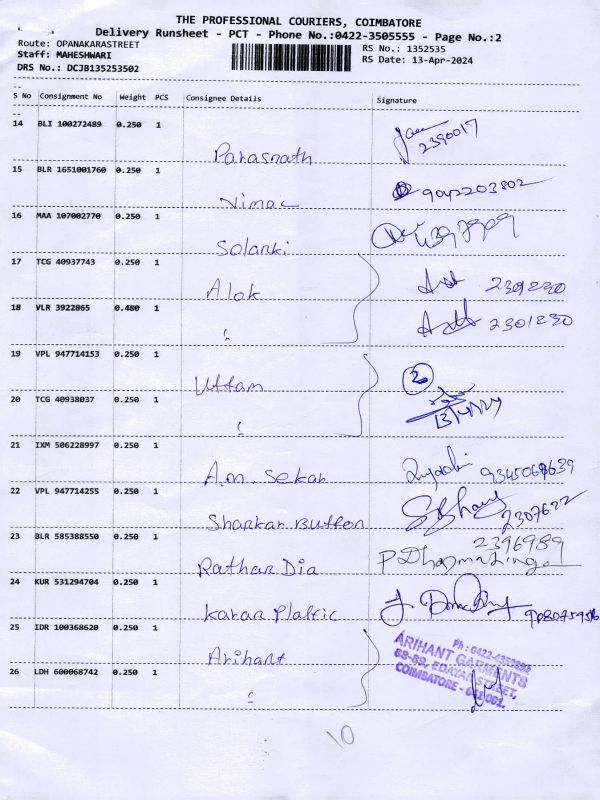 THE PROFESSIONAL COURIERS, COIMBATORE
Delivery Runsheet - PCT - Phone No.:0422-3505555 - Page No.:2
Route: OPANAKARASTREET
RS No.: 1352535
Staff: MAHESHWARI
RS Date: 13-Apr-2024
DRS No.: DCJB135253502
S No Consignment No Weight PCS Consignee Details Signature
14 BLI 100272489 0.250 1
Parasnath 2390017
15 BLR 1651001760 0.250 1
Vimal 9042203802
16 MAA 107002770 0.250 1
Solanki
17 TCG 40937743 0.250 1
Alok 2301230
18 VLR 3922865 0.480 1
2301230
19 VPL 947714153 0.250 1
Uttam 2
20 TCG 40938037 0.250 1
13/4/24
21 IXM 506228997 0.250 1
A.m. Sekar
22 VPL 947714255 0.250 1
Shankar Button 2307622
23 BLR 585388550 0.250 1
2396989
Rathan Dia
24 KUR 531294704 0.250 1
Karan Plastic
25 IDR 100368620 0.250 1
Arihant
Ph : 0422-4350892
ARIHANT GARMENTS
68-69, EDAYAR STREET,
COIMBATORE - 641 001.
26 LDH 600068742 0.250 1
10